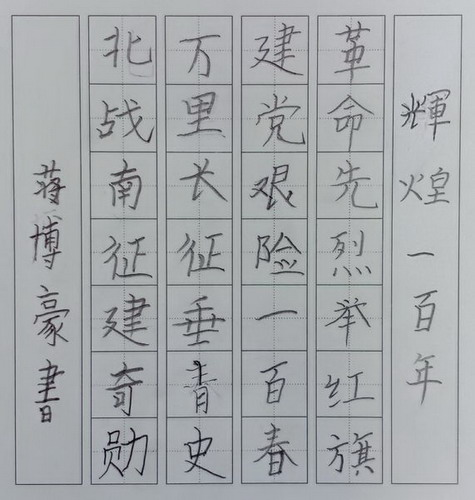 輝煌一百年
革命先烈举红旗
建党艰险一百春
万里长征垂青史
北战南征建奇勋
蒋博豪書